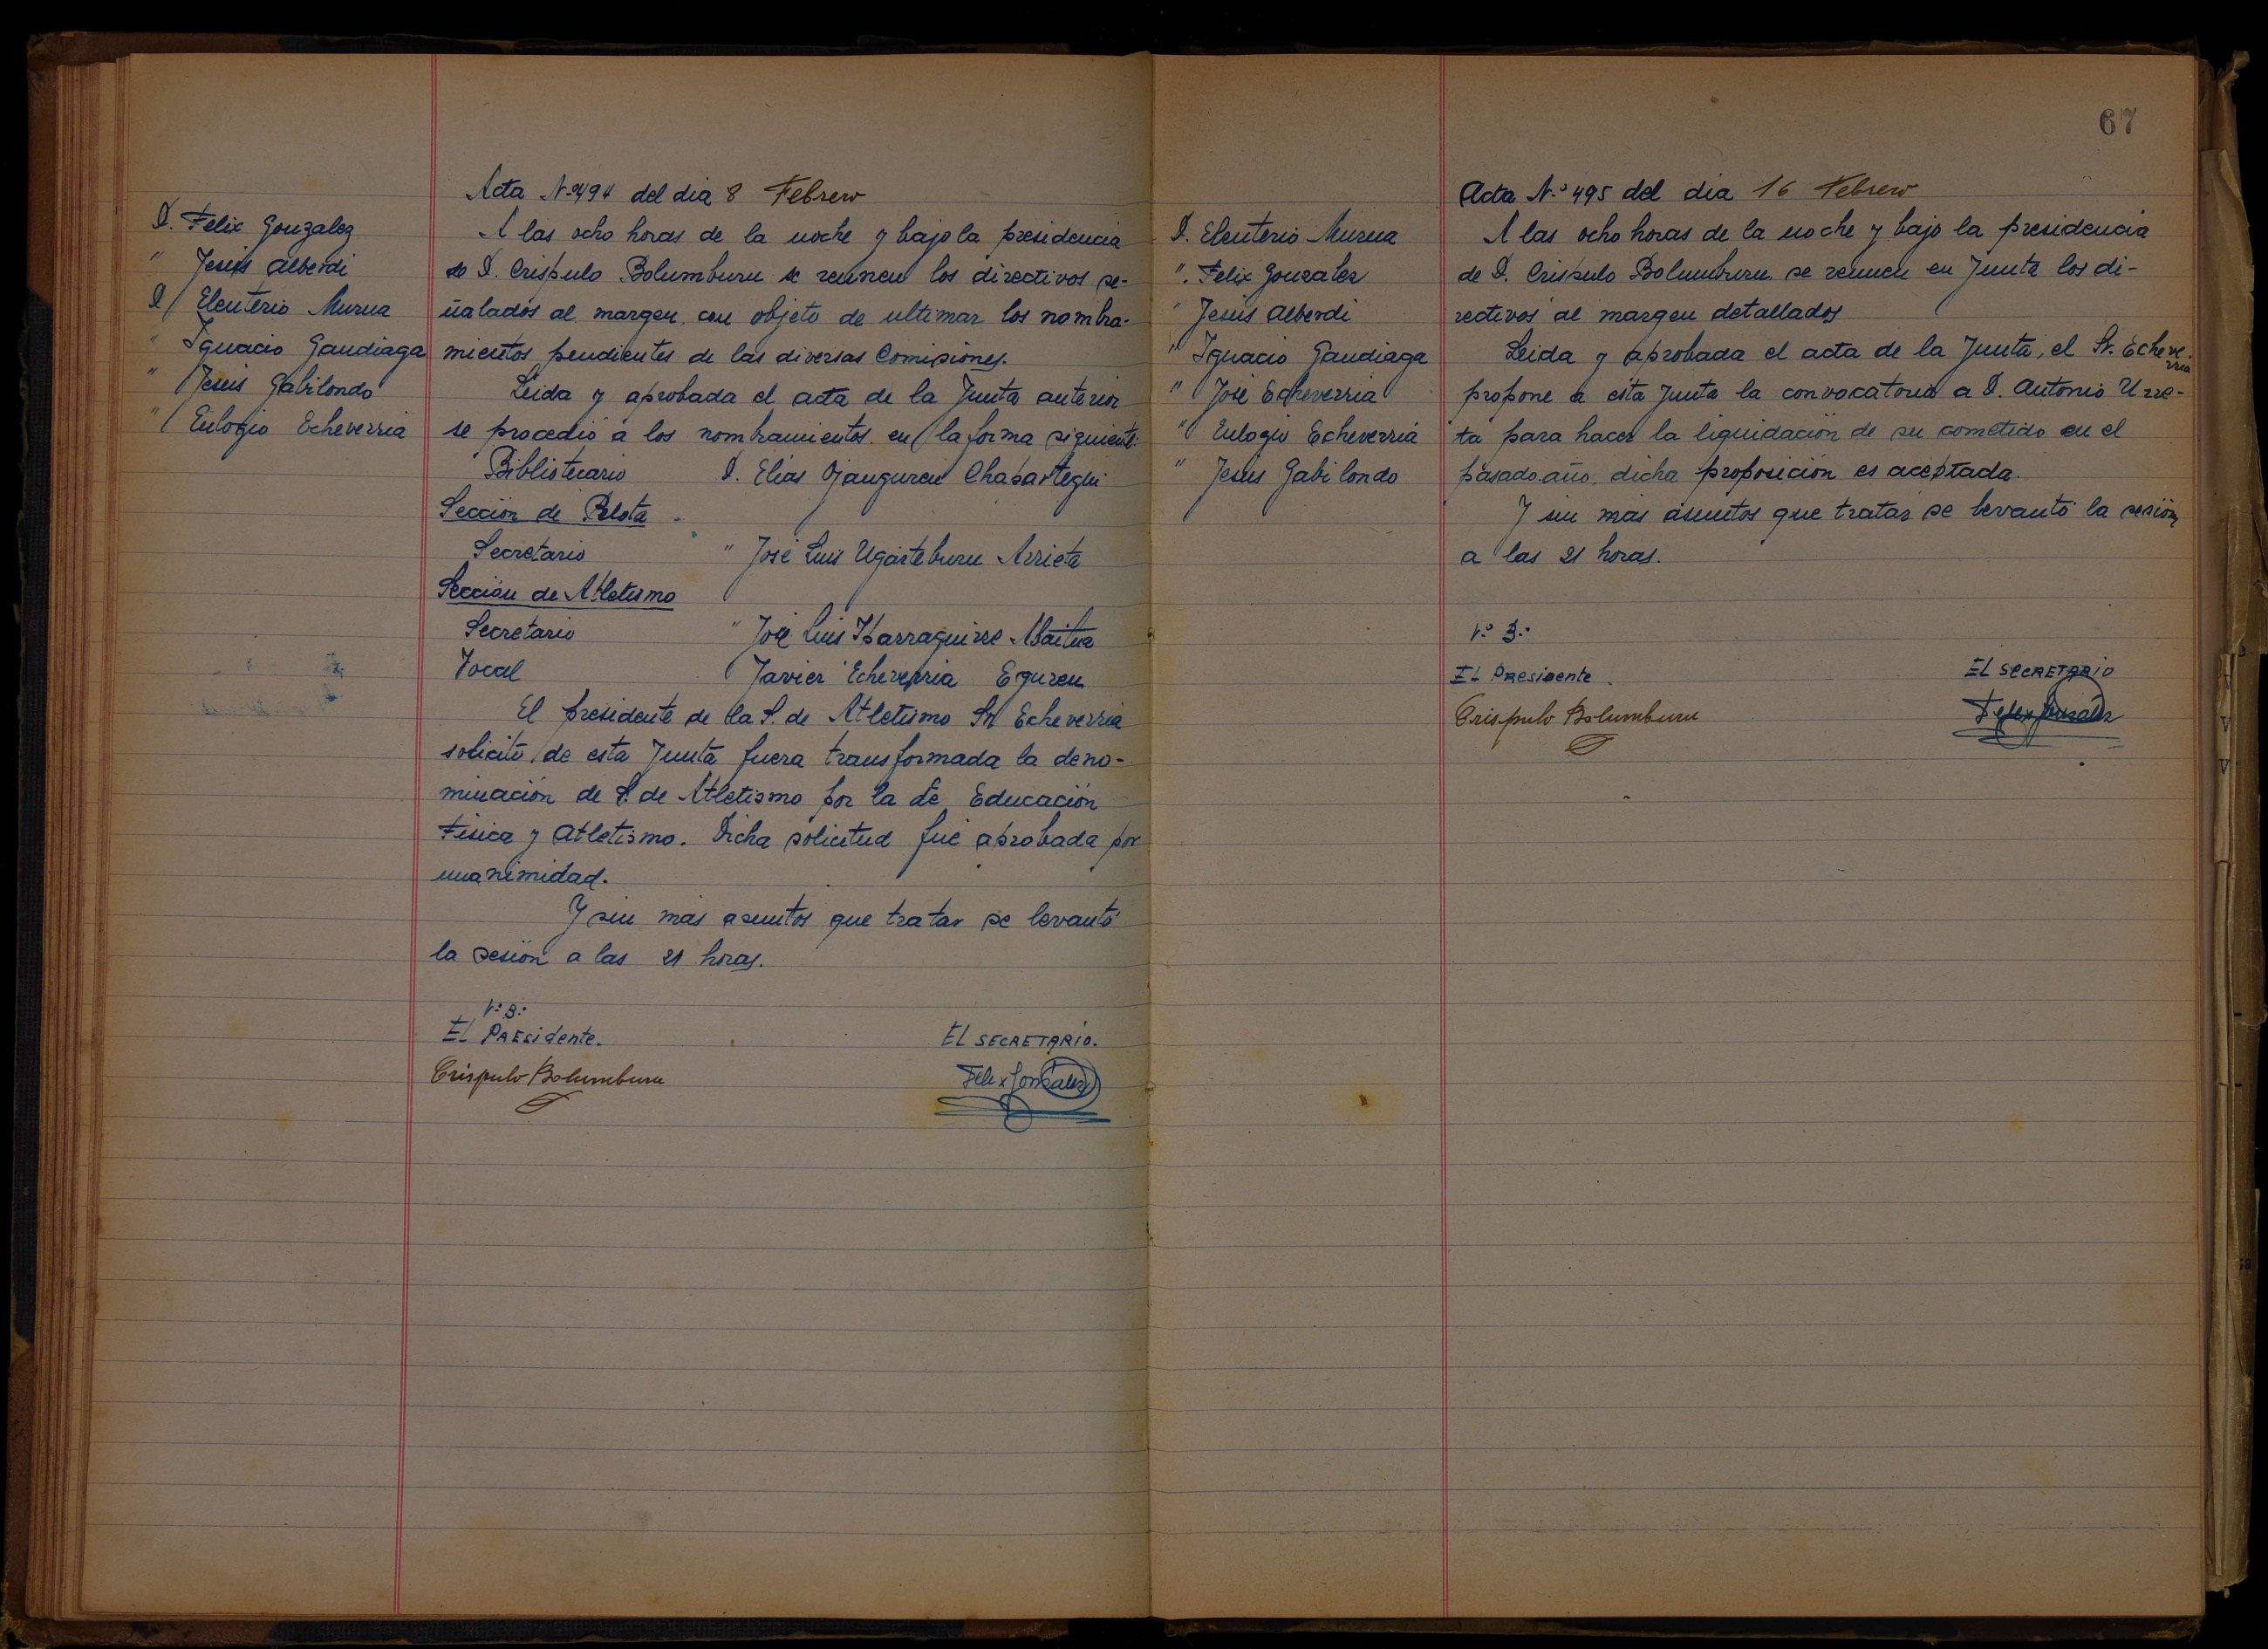 Acta N.º 494 del dia 8 Febrero
D. Felix Gonzalez
" Jesús Alberdi
D. Eleuterio Murua
" Ignacio Gandiaga
" Jesús Gabilondo
" Eulogio Echeverria
A las ocho horas de la noche y bajo la presidencia
de D. Crispulo Bolumburu se reunen los directivos se-
ñalados al margen con objeto de ultimar los nombra-
mientos pendientes de las diversas Comisiones.
Leida y aprobada el acta de la Junta anterior
se procedió a los nombramientos en la forma siguiente:
Bibliotecario D. Elías Ojanguren Chabartegui
Sección de Pelota
Secretario " José Luis Ugarteburu Arrieta
Sección de Atletismo
Secretario " José Luis Ibarraguirre Abaitua
Vocal Javier Echeverria Eguren
El presidente de la S. de Atletismo Sr. Echeverria
solicitó de esta Junta fuera transformada la deno-
minación de S. de Atletismo por la de Educación
Fisica y Atletismo. Dicha solicitud fué aprobada por
unanimidad.
Y sin mas asuntos que tratar se levantó
la sesión a las 21 horas.
Vº Bº
El Presidente. EL SECRETARIO.
Crispulo Bolumburu Felix Gonzalez
67
Acta N.º 495 del dia 16 Febrero
D. Eleuterio Murua
" Felix Gonzalez
" Jesús Alberdi
" Ignacio Gandiaga
" José Echeverria
" Eulogio Echeverria
" Jesús Gabilondo
A las ocho horas de la noche y bajo la presidencia
de D. Crispulo Bolumburu se reunen en Junta los di-
rectivos al margen detallados
Leida y aprobada el acta de la Junta, el Sr. Echeve-
rria
propone a esta Junta la convocatoria a D. Antonio Urre-
ta para hacer la liquidación de su cometido en el
pasado año, dicha proposición es aceptada.
Y sin mas asuntos que tratar se levantó la sesión
a las 21 horas.
Vº Bº
El Presidente EL SECRETARIO
Crispulo Bolumburu Felix Gonzalez